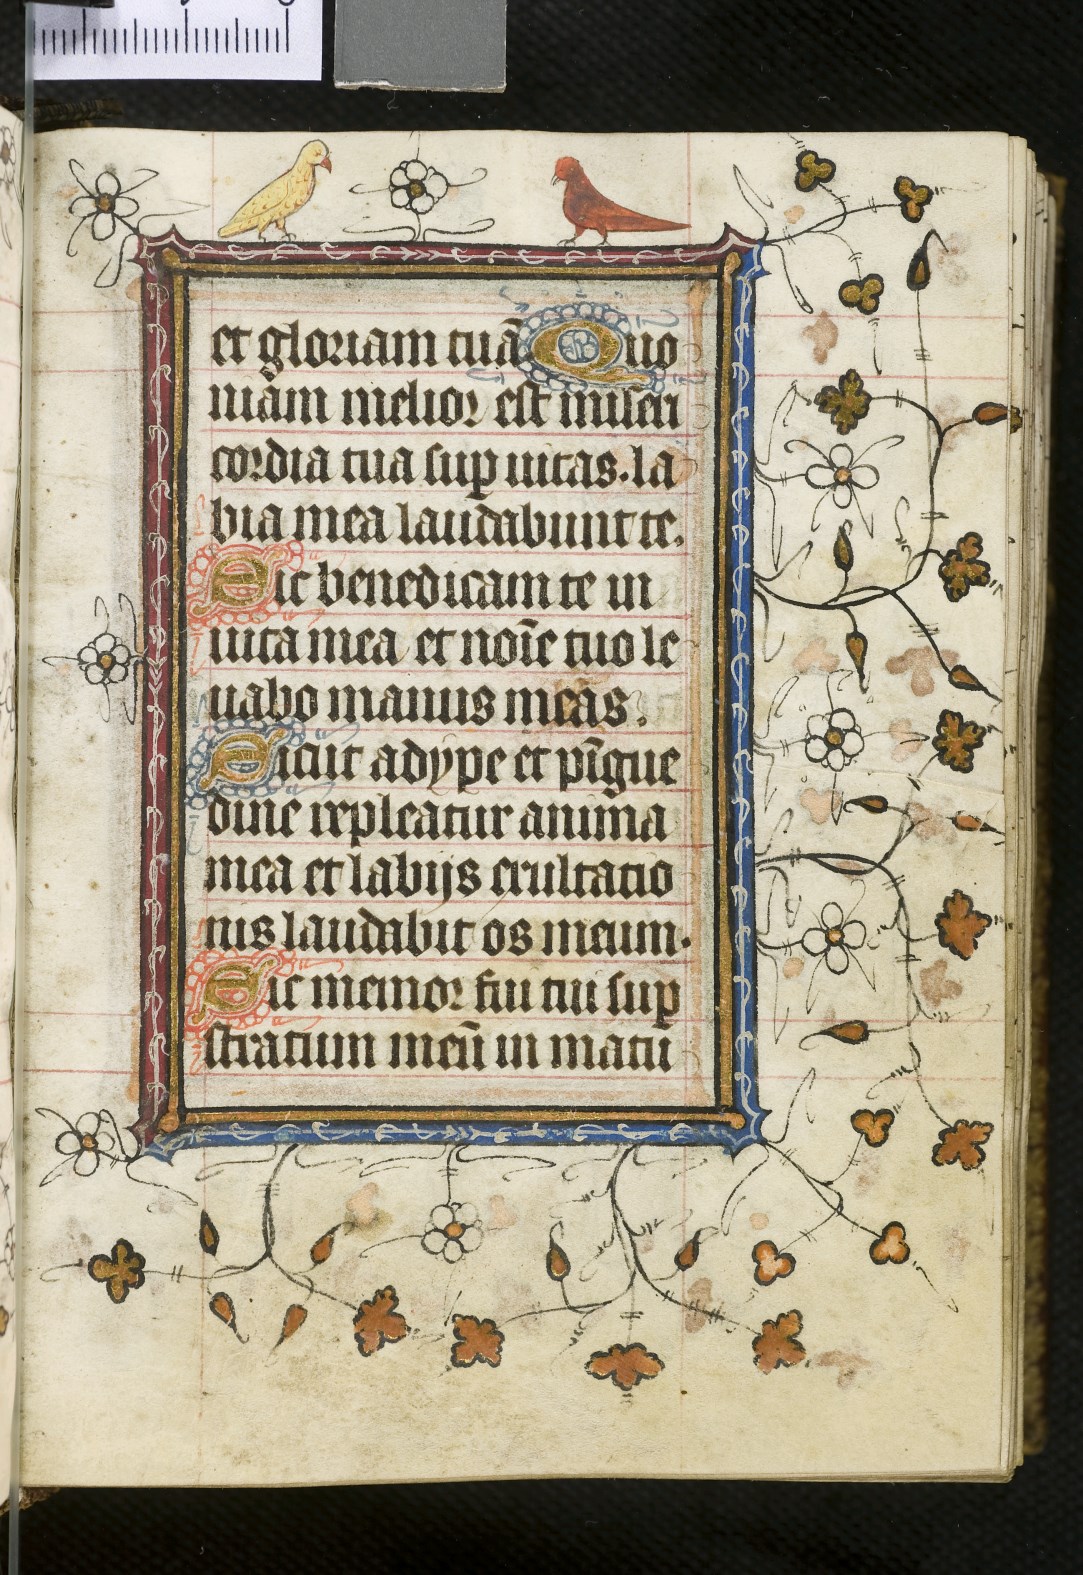 et gloriam tuā Quo
niam melior est miseri
cordia tua sup uitas. la
bia mea laudabunt te.
Sic benedicam te in
uita mea et noīe tuo le
uabo manus meas.
Sicut adype et pīgue
dine repleatur anima
mea et labijs exultatio
nis laudabit os meum.
Sic memor fui tui sup
stratum meū in matu